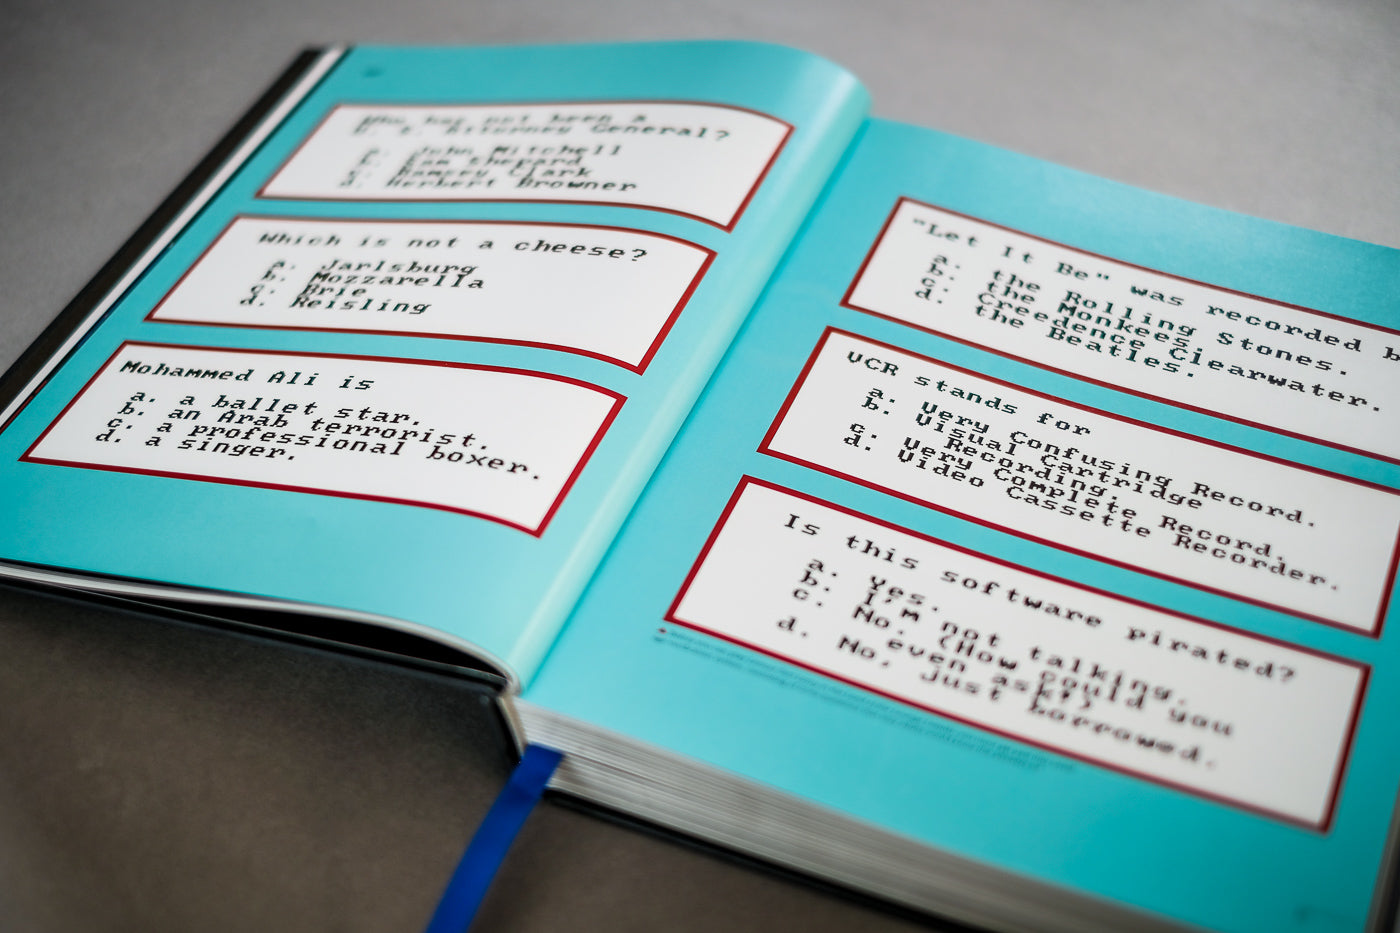 Who has not been a
U. S. Attorney General?
a. John Mitchell
b. Sam Shepard
c. Ramsey Clark
d. Herbert Browner
Which is not a cheese?
a. Jarlsburg
b. Mozzarella
c. Brie
d. Reisling
Mohammed Ali is
a. a ballet star.
b. an Arab terrorist.
c. a professional boxer.
d. a singer.
"Let It Be" was recorded
a. the Rolling Stones.
b. the Monkees.
c. Creedence Clearwater.
d. the Beatles.
VCR stands for
a. Very Confusing Record.
b. Visual Cartridge
Recording.
c. Very Complete Record.
d. Video Cassette Recorder.
Is this software pirated?
a. Yes.
b. I'm not talking.
c. No. (How could you
even ask?)
d. No, just borrowed.